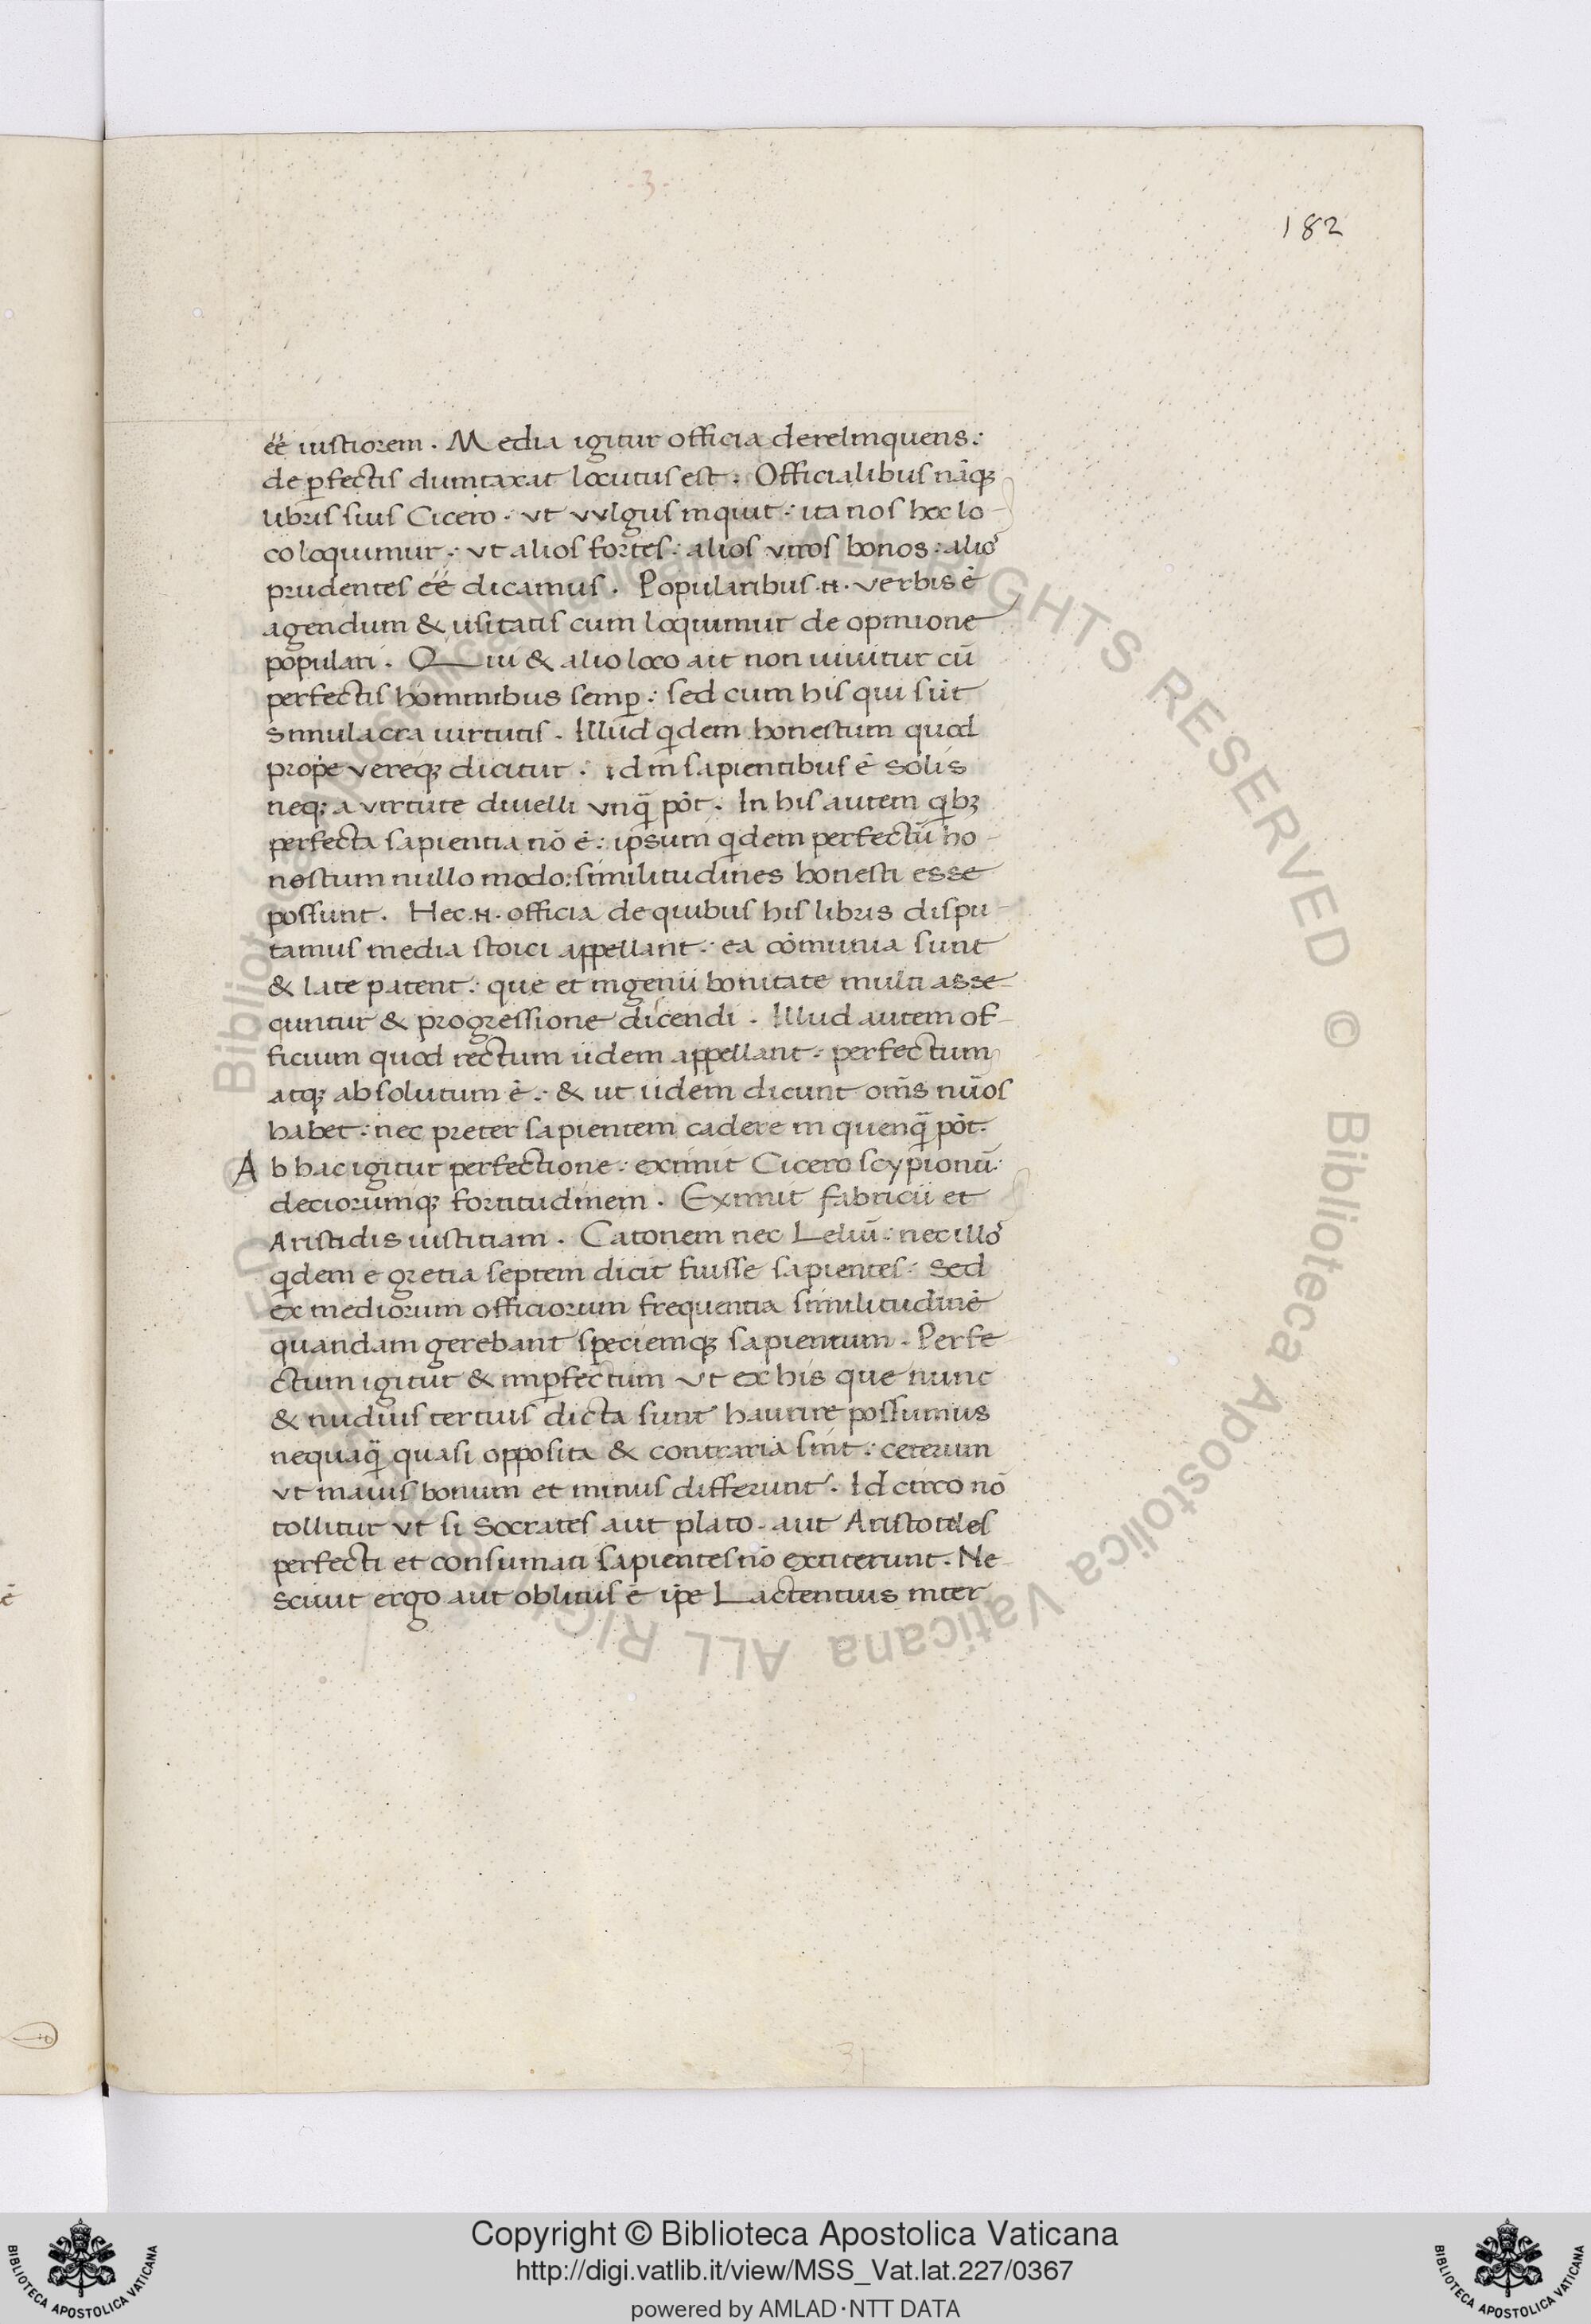 -3-
182
eé iustiorem. Media igitur officia derelinquens:
de ꝑfectis dumtaxat locutus est. Officialibus nāqꝫ
libris suis Cicero. vt vvlgus inquit: ita nos hoc lo-
co loquimur: vt alios fortes: alios viros bonos: alio᷒
prudentes eé dicamus. Popularibus .n. verbis ē
agendum & usitatis cum loquimur de opinione
populari. Qui & alio loco ait non uiuitur cū
perfectis hominibus semꝑ: sed cum his qui sūt
simulacra uirtutis. Illud qͥdem honestum quod
prop̄e vereqꝫ dicitur: id in sapientibus ē solis
neqꝫ a virtute diuelli vnqͣ pōt. In his autem qͥbꝫ
perfecta sapientia nō ē: ipsum qͥdem perfectū ho-
nestum nullo modo: similitudines honesti esse
possunt. Hec .n. officia de quibus his libris dispu-
tamus media stoici appellant: ea cōmunia sunt
& late patent: que et ingenii bonitate multi asse-
quntur & progressione dicendi. Illud autem of-
ficium quod rectum iidem appellant: perfectum
atqꝫ absolutum ē: & ut iidem dicunt om̄s nūos
habet: nec preter sapientem cadere in quenqͣ pōt.
Ab hac igitur perfectione: eximit Cicero scypionū:
deciorumqꝫ fortitudinem. Eximit fabricii et
Aristidis iustitiam. Catonem nec Leliū: nec illo᷒
qͥdem e gretia septem dicit fuisse sapientes: Sed
ex mediorum officiorum frequentia similitudinē
quandam gerebant speciemqꝫ sapientum. Perfe
ctum igitur & imꝑfectum vt ex his que nunc
& nudius tertius dicta sunt haurire possumus
nequaqͣ quasi opposita & contraria sint: ceterum
vt maius bonum et minus differunt. Id circo nō
tollitur vt si Socrates aut plato. aut Aristoteles
perfecti et consumati sapientes nō extiterunt. Ne-
sciuit ergo aut oblitus ē ip̄e Lactentius inter
31
© Biblioteca Apostolica Vaticana ALL RIGHTS RESERVED © Biblioteca Apostolica Vaticana ALL RIGHTS RESERVED
Copyright © Biblioteca Apostolica Vaticana
http://digi.vatlib.it/view/MSS_Vat.lat.227/0367
powered by AMLAD·NTT DATA
BIBLIOTECA APOSTOLICA VATICANA
BIBLIOTECA APOSTOLICA VATICANA